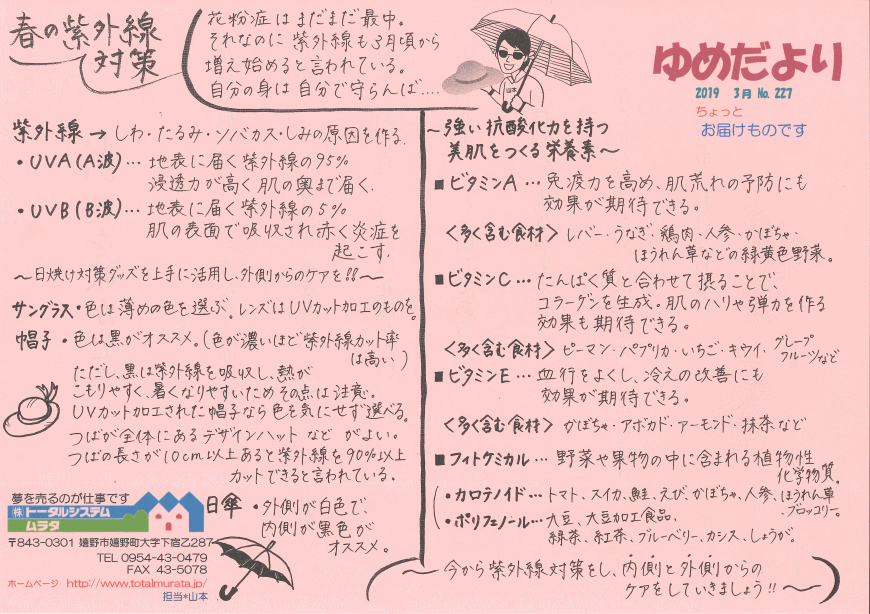 春の紫外線
対策
花粉症はまだまだ最中。
それなのに 紫外線も3月頃から
増え始めると言われている。
自分の身は 自分で守らんば....
山本
ゆめだより
2019 3月 No. 227
ちょっと
お届けものです
紫外線 → しわ・たるみ・ソバカス・しみの原因を作る。
・UVA(A波)… 地表に届く紫外線の95%
浸透力が高く肌の奥まで届く。
・UVB(B波)… 地表に届く紫外線の5%
肌の表面で吸収され赤く炎症を
起こす。
〜日焼け対策グッズを上手に活用し、外側からのケアを!!〜
サングラス・色は薄めの色を選ぶ。レンズはUVカット加工のものを。
帽子・色は黒がオススメ。(色が濃いほど紫外線カット率
は高い)
ただし、黒は紫外線を吸収し、熱が
こもりやすく、暑くなりやすいためその点は注意。
UVカット加工された帽子なら色を気にせず選べる。
つばが全体にあるデザインハット など がよい。
つばの長さが10cm以上あると紫外線を90%以上
カットできると言われている。
日傘・外側が白色で、
内側が黒色が
オススメ。
夢を売るのが仕事です
㈱トータルシステム
ムラタ
〒843-0301 嬉野市嬉野町大字下宿乙287
TEL 0954-43-0479
FAX 43-5078
ホームページ http://www.totalmurata.jp/
担当*山本
〜強い抗酸化力を持つ
美肌をつくる栄養素〜
■ビタミンA … 免疫力を高め、肌荒れの予防にも
効果が期待できる。
<多く含む食材> レバー・うなぎ、鶏肉・人参・かぼちゃ・
ほうれん草などの緑黄色野菜。
■ビタミンC … たんぱく質と合わせて摂ることで、
コラーゲンを生成。肌のハリや弾力を作る
効果も期待できる。
<多く含む食材> ピーマン・パプリカ・いちご・キウイ・グレープ
フルーツなど
■ビタミンE … 血行をよくし、冷えの改善にも
効果が期待できる。
<多く含む食材> かぼちゃ・アボカド・アーモンド・抹茶など
■フィトケミカル … 野菜や果物の中に含まれる植物性
化学物質。
・カロテノイド … トマト、スイカ、鮭、えび、かぼちゃ、人参、ほうれん草
・ブロッコリー。
・ポリフェノール … 大豆、大豆加工食品、
緑茶、紅茶、ブルーベリー、カシス、しょうが。
〜今から紫外線対策をし、内側と外側からの
ケアをしていきましょう!!〜